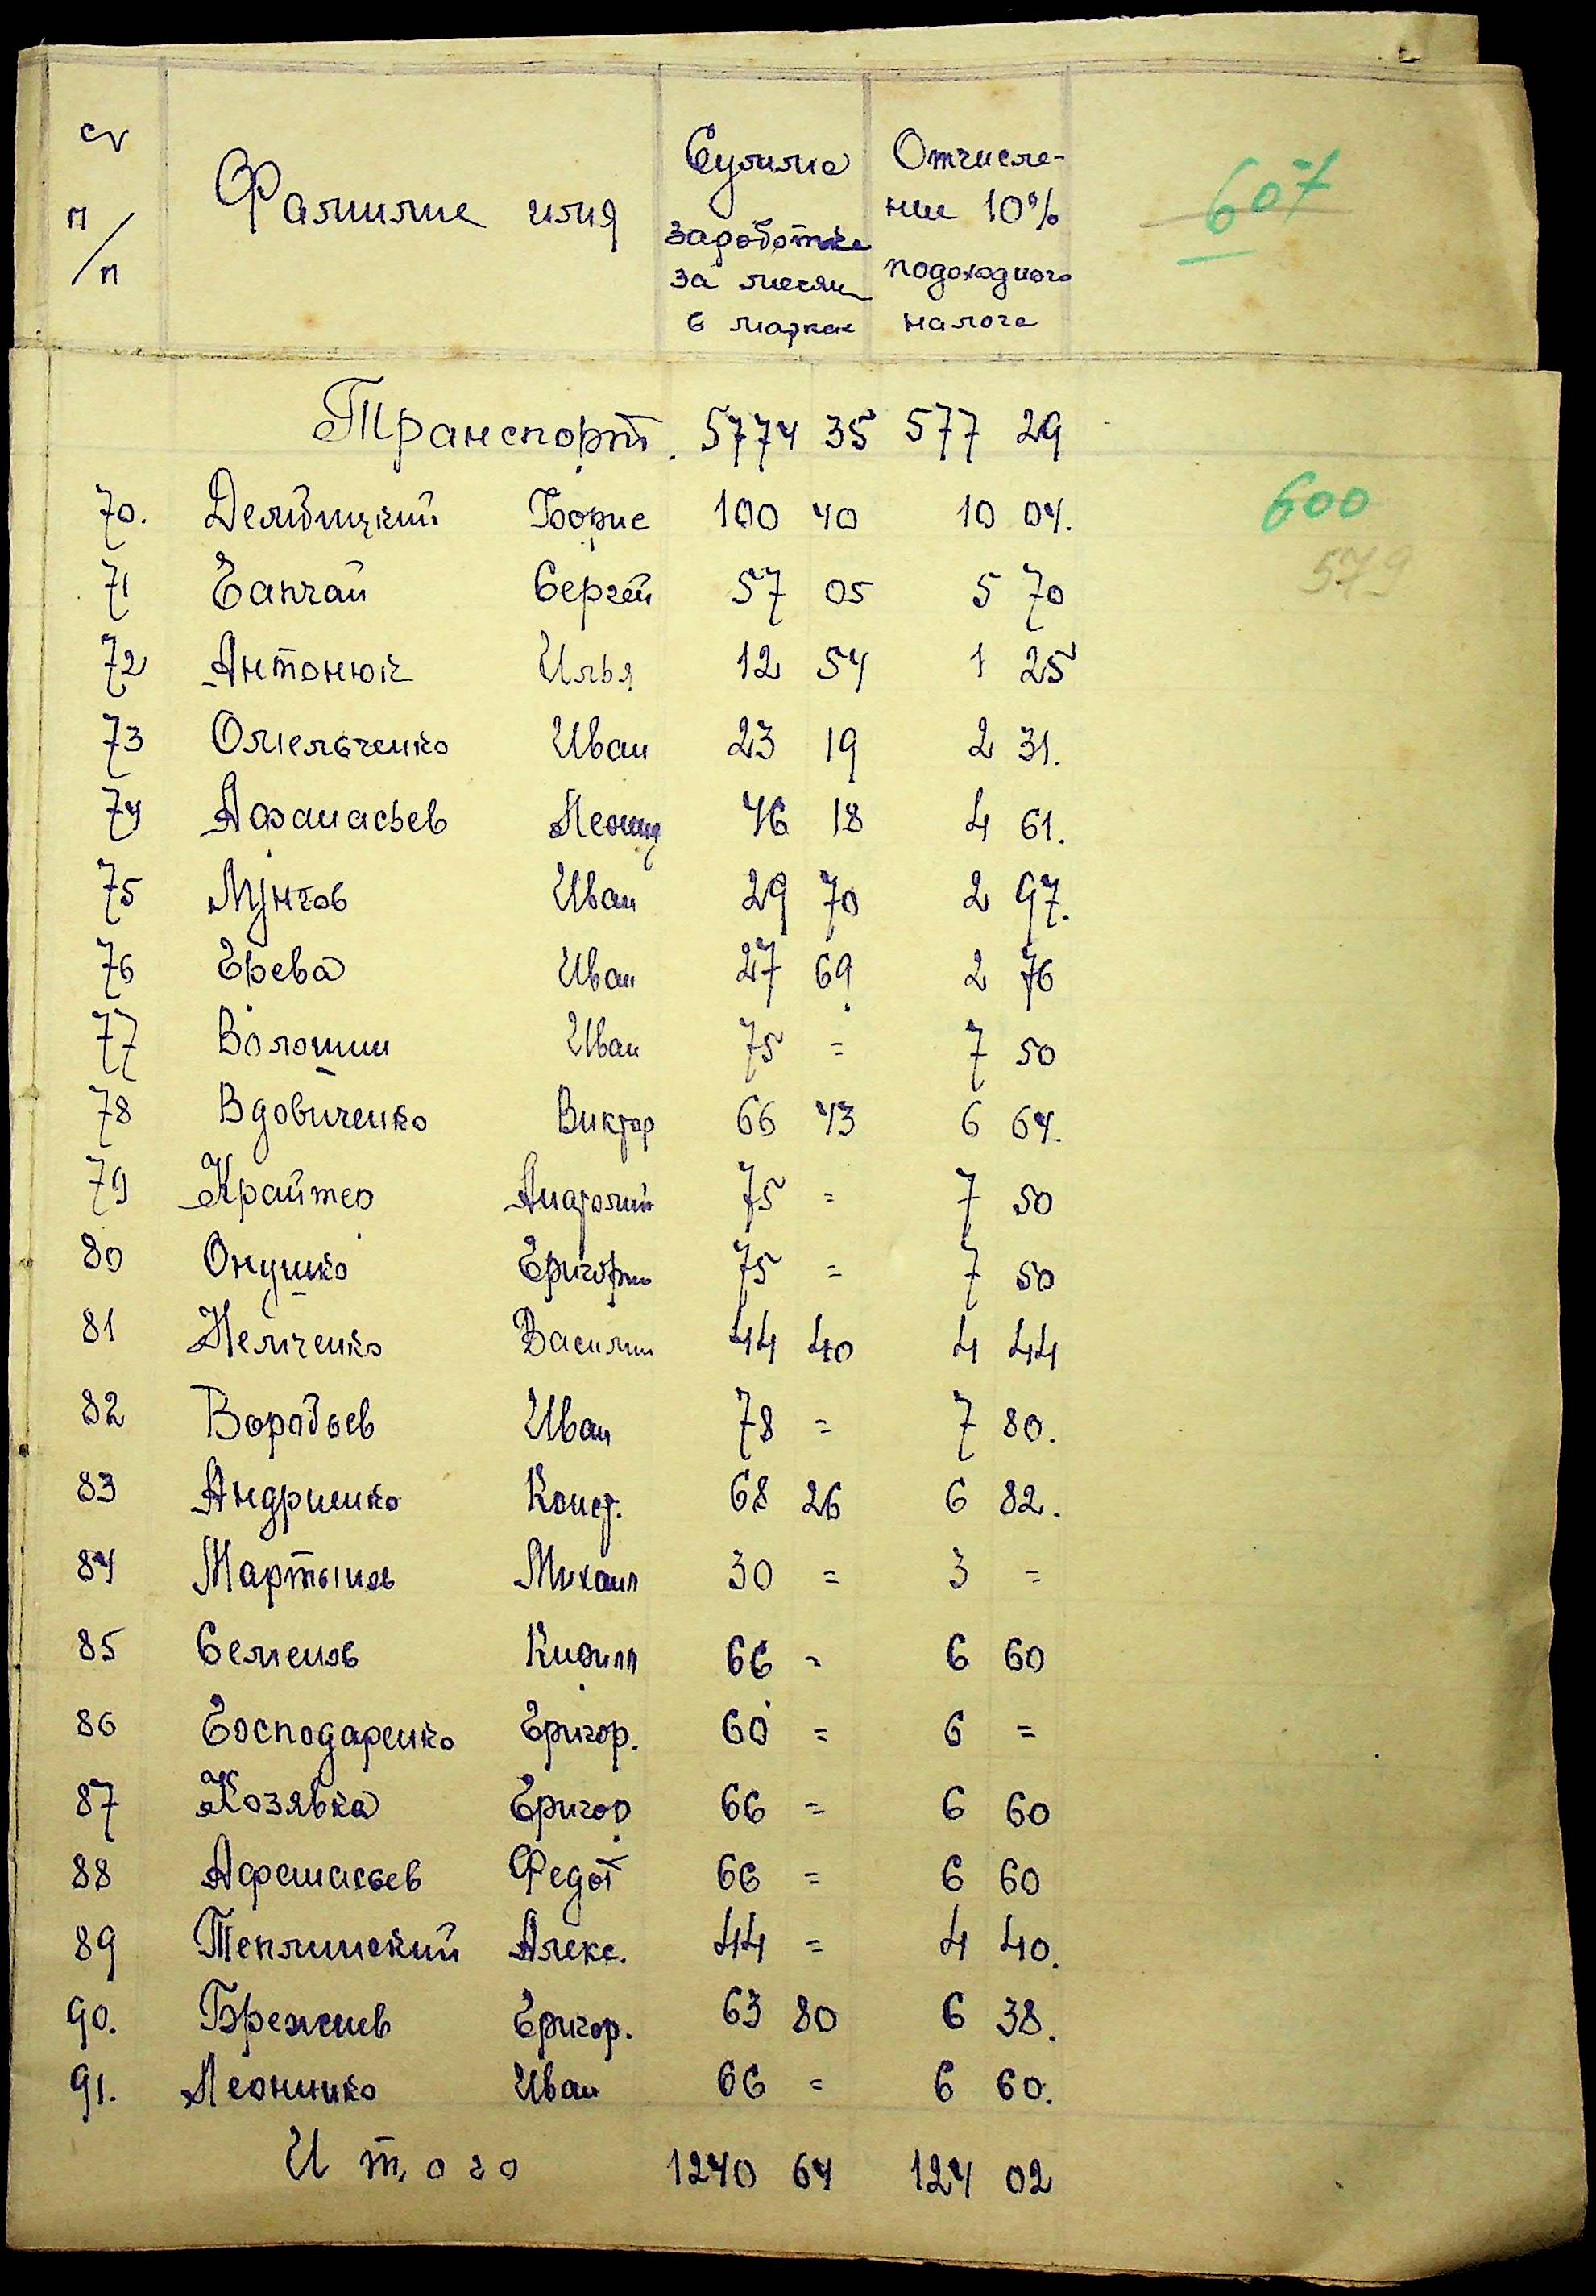 № п/п Фамилие имя Сумма заработка за месяц в марках Отчисление 10% подоходного налога 607
Транспорт. 5774 35 577 29
70. Борис 100 40 10 04. 600
71 Гапчай Сергей 57 05 5 70 579
72 Антонюк Илья 12 54 1 25
73 Омельченко Иван 23 19 2 31.
74 Афанасьев Леонид 46 18 4 61.
75 Лунгов Иван 29 70 2 97.
76 Ерева Иван 27 69 2 76
77 Волошин Иван 75 = 7 50
78 Вдовиченко Виктор 66 43 6 64.
79 Крайтер Анатолий 75 = 7 50
80 Онушко Григорий 75 = 7 50
81 Немченко Василий 44 40 4 44
82 Воробьев Иван 78 = 7 80.
83 Андриенко Конст. 68 26 6 82.
84 Мартынов Михаил 30 = 3 =
85 Семенов Кирилл 66 = 6 60
86 Господаренко Григор. 60 = 6 =
87 Козявка Григор 66 = 6 60
88 Афанасьев Федот 66 = 6 60
89 Теплинский Алекс. 44 = 4 40.
90. Брежнев Григор. 63 80 6 38.
91. Леоненко Иван 66 = 6 60.
Итого 1240 64 124 02